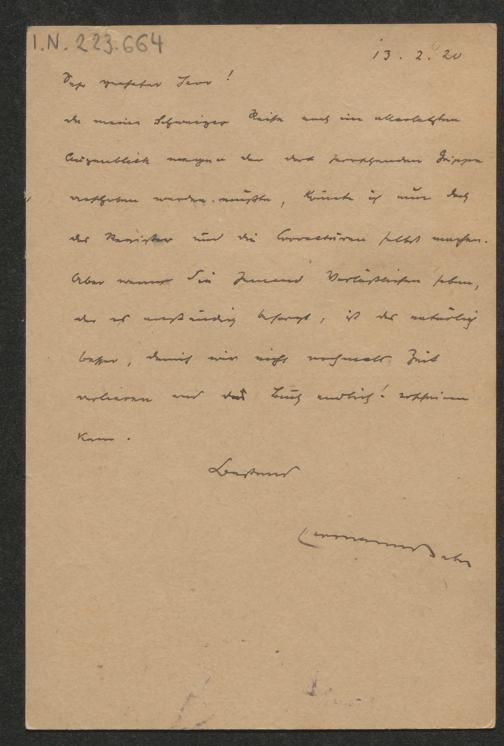 I.N. 223.664
13. 2. 20
Sehr geehrter Herr!
da meine Schweizer Reise noch im allerletzten
Augenblick wegen der dort herrschenden Grippe
verschoben werden musste, könnte ich nun doch
das Register und die Correcturen selbst machen.
Aber wenn Sie Jemand Verlässlichen haben,
der es verständig besorgt, ist das natürlich
besser, damit wir nicht nochmals Zeit
verlieren und das Buch endlich! erscheinen
kann.
Bestens
Hermann Bahr